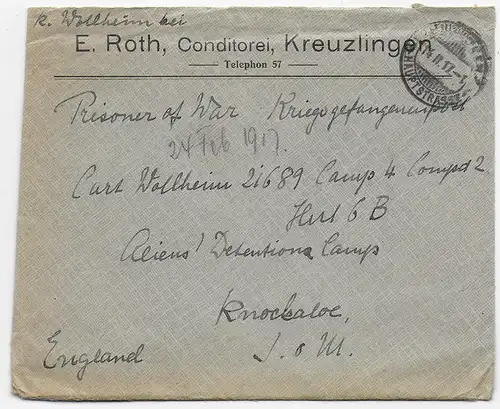 K. Wollheim bei
E. Roth, Conditorei, Kreuzlingen
Telephon 57
HAUPTSTRASSE
Prisoner of War Kriegsgefangenenpost
24 Feb 1917.
Curt Wollheim 21689 Camp 4 Compd 2
Hut 6 B
Aliens' Detention Camp
Knockaloe,
I. o M.
England